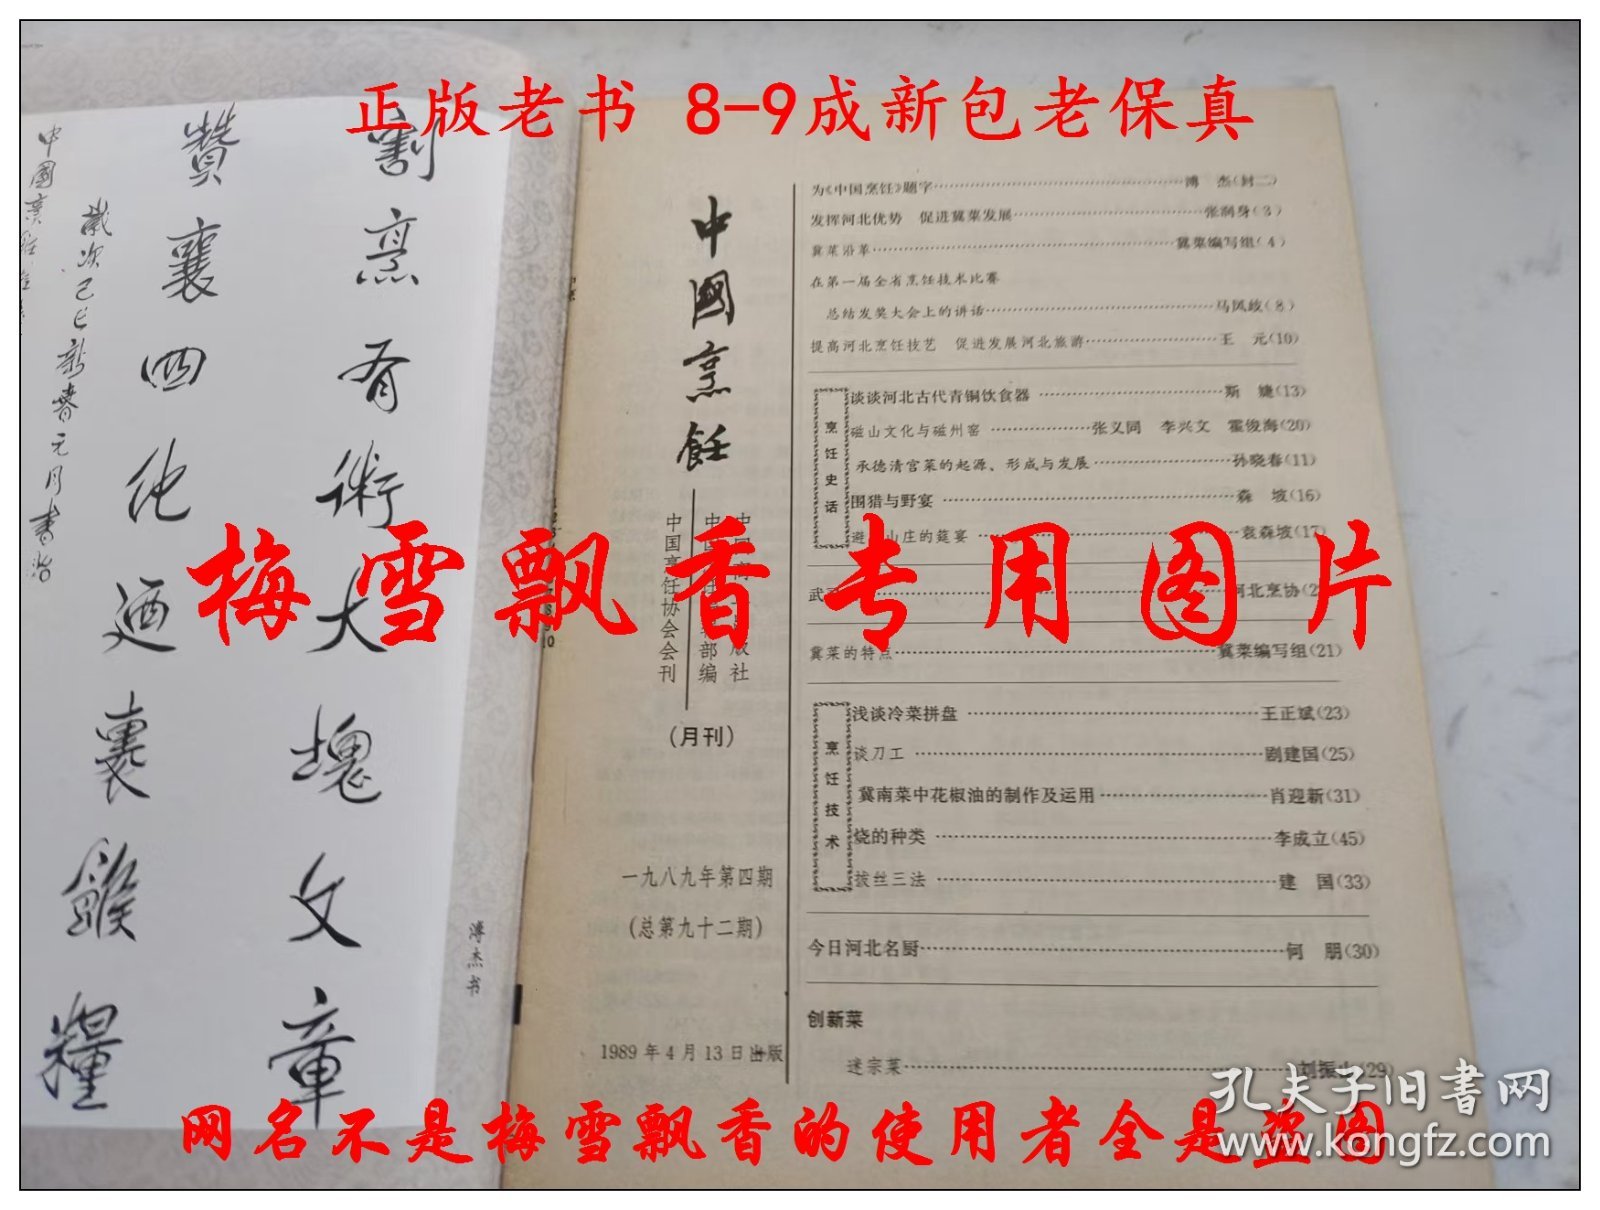 正版老书 8-9成新包老保真
割烹有術大塊文章
贊襄四化迺裹餱糧
歲次己巳新春元月書
溥杰书
中國烹飪
中国烹饪协会会刊
(月刊)
一九八九年第四期
(总第九十二期)
1989年4月13日出版
为《中国烹饪》题字 溥 杰(封二)
发挥河北优势 促进冀菜发展 张润身(3)
冀菜沿革 冀菜编写组(4)
在第一届全省烹饪技术比赛
总结发奖大会上的讲话 马凤岐(8)
提高河北烹饪技艺 促进发展河北旅游 王 元(10)
烹饪史话
谈谈河北古代青铜饮食器 斯 婕(13)
磁山文化与磁州窑 张义同 李兴文 霍俊海(20)
承德清宫菜的起源、形成与发展 孙晓春(11)
围猎与野宴 森 坡(16)
避 山庄的筵宴 袁森坡(17)
武 河北烹协(2
冀菜的特点 冀菜编写组(21)
烹饪技术
浅谈冷菜拼盘 王正斌(23)
谈刀工 剧建国(25)
冀南菜中花椒油的制作及运用 肖迎新(31)
烧的种类 李成立(45)
拔丝三法 建 国(33)
今日河北名厨 何 朋(30)
创新菜
迷宗菜 刘振 (29)
梅雪飘香专用图片
网名不是梅雪飘香的使用者全是盗图
孔夫子旧书网
www.kongfz.com